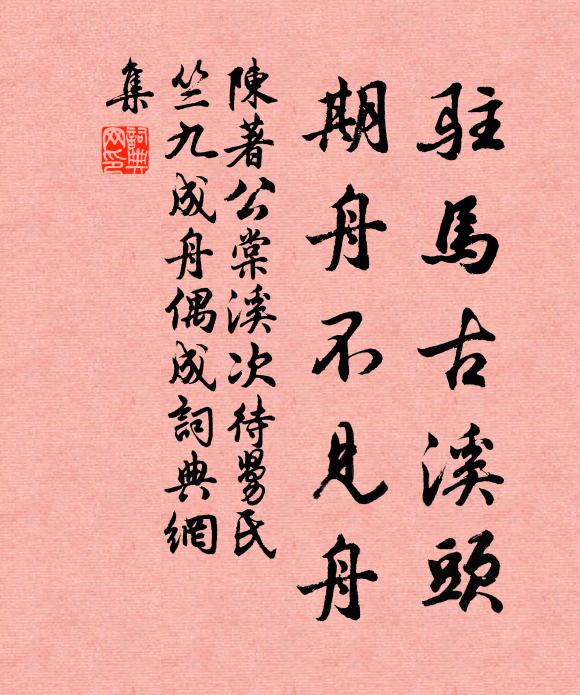 駐馬古溪頭
期舟不見舟
陳著公棠溪次待舅氏
竺九成舟偶成詞典網
集
詞典
网印